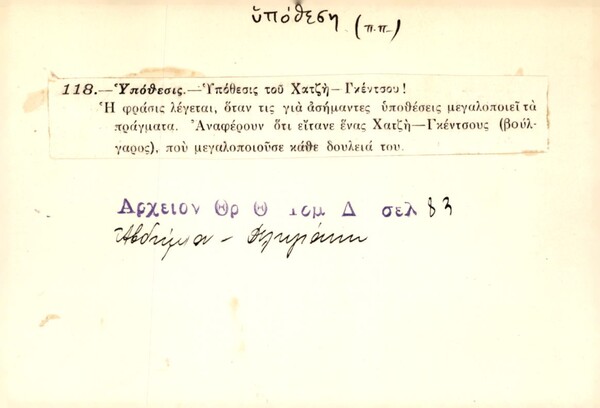 ὑπόθεση (π.π.)
118.—Ὑπόθεσις.—Ὑπόθεσις τοῦ Χατζῆ—Γκέντσου!
Ἡ φράσις λέγεται, ὅταν τις γιὰ ἀσήμαντες ὑποθέσεις μεγαλοποιεῖ τὰ
πράγματα. Ἀναφέρουν ὅτι εἴτανε ἕνας Χατζῆ—Γκέντσους (βούλ-
γαρος), ποὺ μεγαλοποιοῦσε κάθε δουλειά του.
Αρχειον Θρ Θ τομ Δ σελ 83